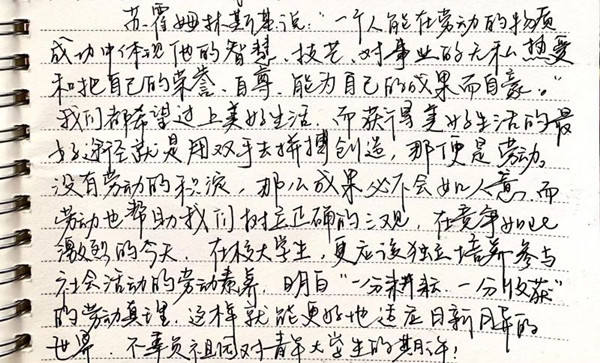 苏霍姆林斯基说："一个人能在劳动的物质
成功中体现他的智慧、技艺、对事业的无私热爱
和把自己的荣誉、自尊、能为自己的成果而自豪。"
我们都希望过上美好生活，而获得美好生活的最
好途径就是用双手去拼搏创造，那便是劳动。
没有劳动的积淀，那么成果必不会如人意，而
劳动也帮助我们树立正确的三观，在竞争如此
激烈的今天，在校大学生，更应该独立培养参与
社会活动的劳动素养，明白"一分耕耘一分收获"
的劳动真理，这样就能更好地适应日新月异的
世界，不辜负祖国对青年大学生的期许，